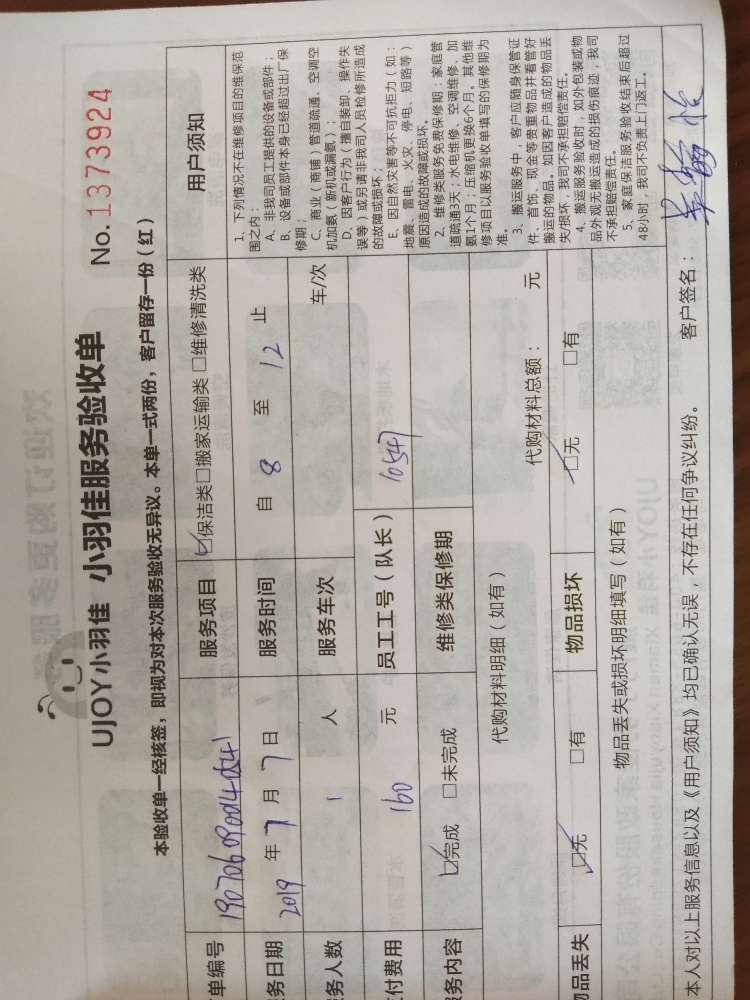 UJOY小羽佳 小羽佳服务验收单
No.1373924
本验收单一经核签，即视为对本次服务验收无异议。本单一式两份，客户留存一份（红）
单编号
服务项目 ☑保洁类□搬家运输类 □维修清洗类
务日期 2019年7月7日
服务时间 自 8 至 12 止
务人数 1 人
服务车次 车/次
付费用 160 元
员工工号（队长） 10547
务内容 ☑完成 □未完成
维修类保修期
代购材料明细（如有）
代购材料总额： 元
物品丢失 ☑无 □有
物品损坏 ☑无 □有
物品丢失或损坏明细填写（如有）
用户须知
1、下列情况不在维修项目的维保范
围之内：
A、非我司员工提供的设备或部件；
B、设备或部件本身已经超过出厂保
修期；
C、商业（商铺）管道疏通、空调空
机加氨（新机或漏氨）；
D、因客户行为（擅自装卸、操作失
误等）或另请非我司人员检修所造成
的故障或损坏；
E、因自然灾害等不可抗拒力（如：
地震、雷电、火灾、停电、短路等）
原因造成的故障或损坏。
2、维修类服务免费保修期：家庭管
道疏通3天；水电维修、空调维修、加
氨1个月；压缩机更换6个月。其他维
修项目以服务验收单填写的保修期为
准。
3、搬运服务中，客户应随身保管证
件、首饰、现金等贵重物品并看管好
搬运的物品。如因客户造成的物品丢
失/损坏，我司不承担赔偿责任。
4、搬运服务验收时，如外包装或物
品外观无搬运造成的损伤痕迹，我司
不承担赔偿责任。
5、家庭保洁服务验收结束后超过
48小时，我司不负责上门返工。
本人对以上服务信息以及《用户须知》均已确认无误，不存在任何争议纠纷。 客户签名：